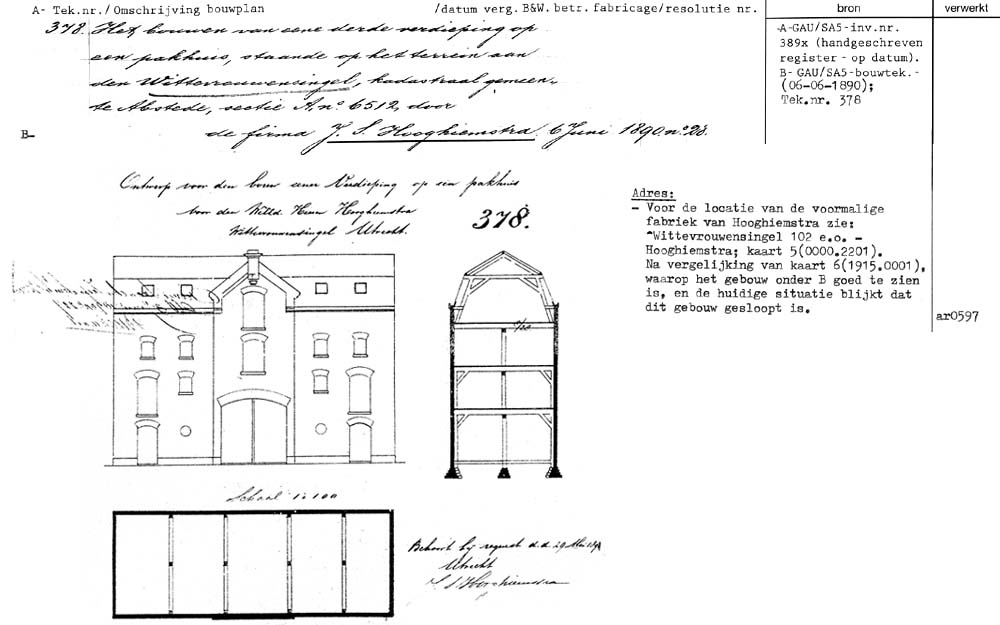 A- Tek.nr./Omschrijving bouwplan /datum verg. B&W. betr. fabricage/resolutie nr. bron verwerkt
378. Het bouwen van eene derde verdieping op
een pakhuis, staande op het terrein aan
den Wittevrouwensingel, kadastraal gemeen-
te Abstede, sectie A, no 6512, door
B- de firma J. S. Hooghiemstra. 6 Juni 1890 no 28.
A-GAU/SA5-inv.nr.
389x (handgeschreven
register - op datum).
B- GAU/SA5-bouwtek.-
(06-06-1890);
Tek.nr. 378
Ontwerp voor den bouw eener Verdieping op een pakhuis
voor den Heer Hooghiemstra
Wittevrouwensingel Utrecht.
378.
Adres:
- Voor de locatie van de voormalige
fabriek van Hooghiemstra zie:
^Wittevrouwensingel 102 e.o. -
Hooghiemstra; kaart 5(0000.2201).
Na vergelijking van kaart 6(1915.0001),
waarop het gebouw onder B goed te zien
is, en de huidige situatie blijkt dat
dit gebouw gesloopt is.
ar0597
Schaal 1:100
Behoort bij request d.d. 29 Mei
Utrecht
J S Hooghiemstra